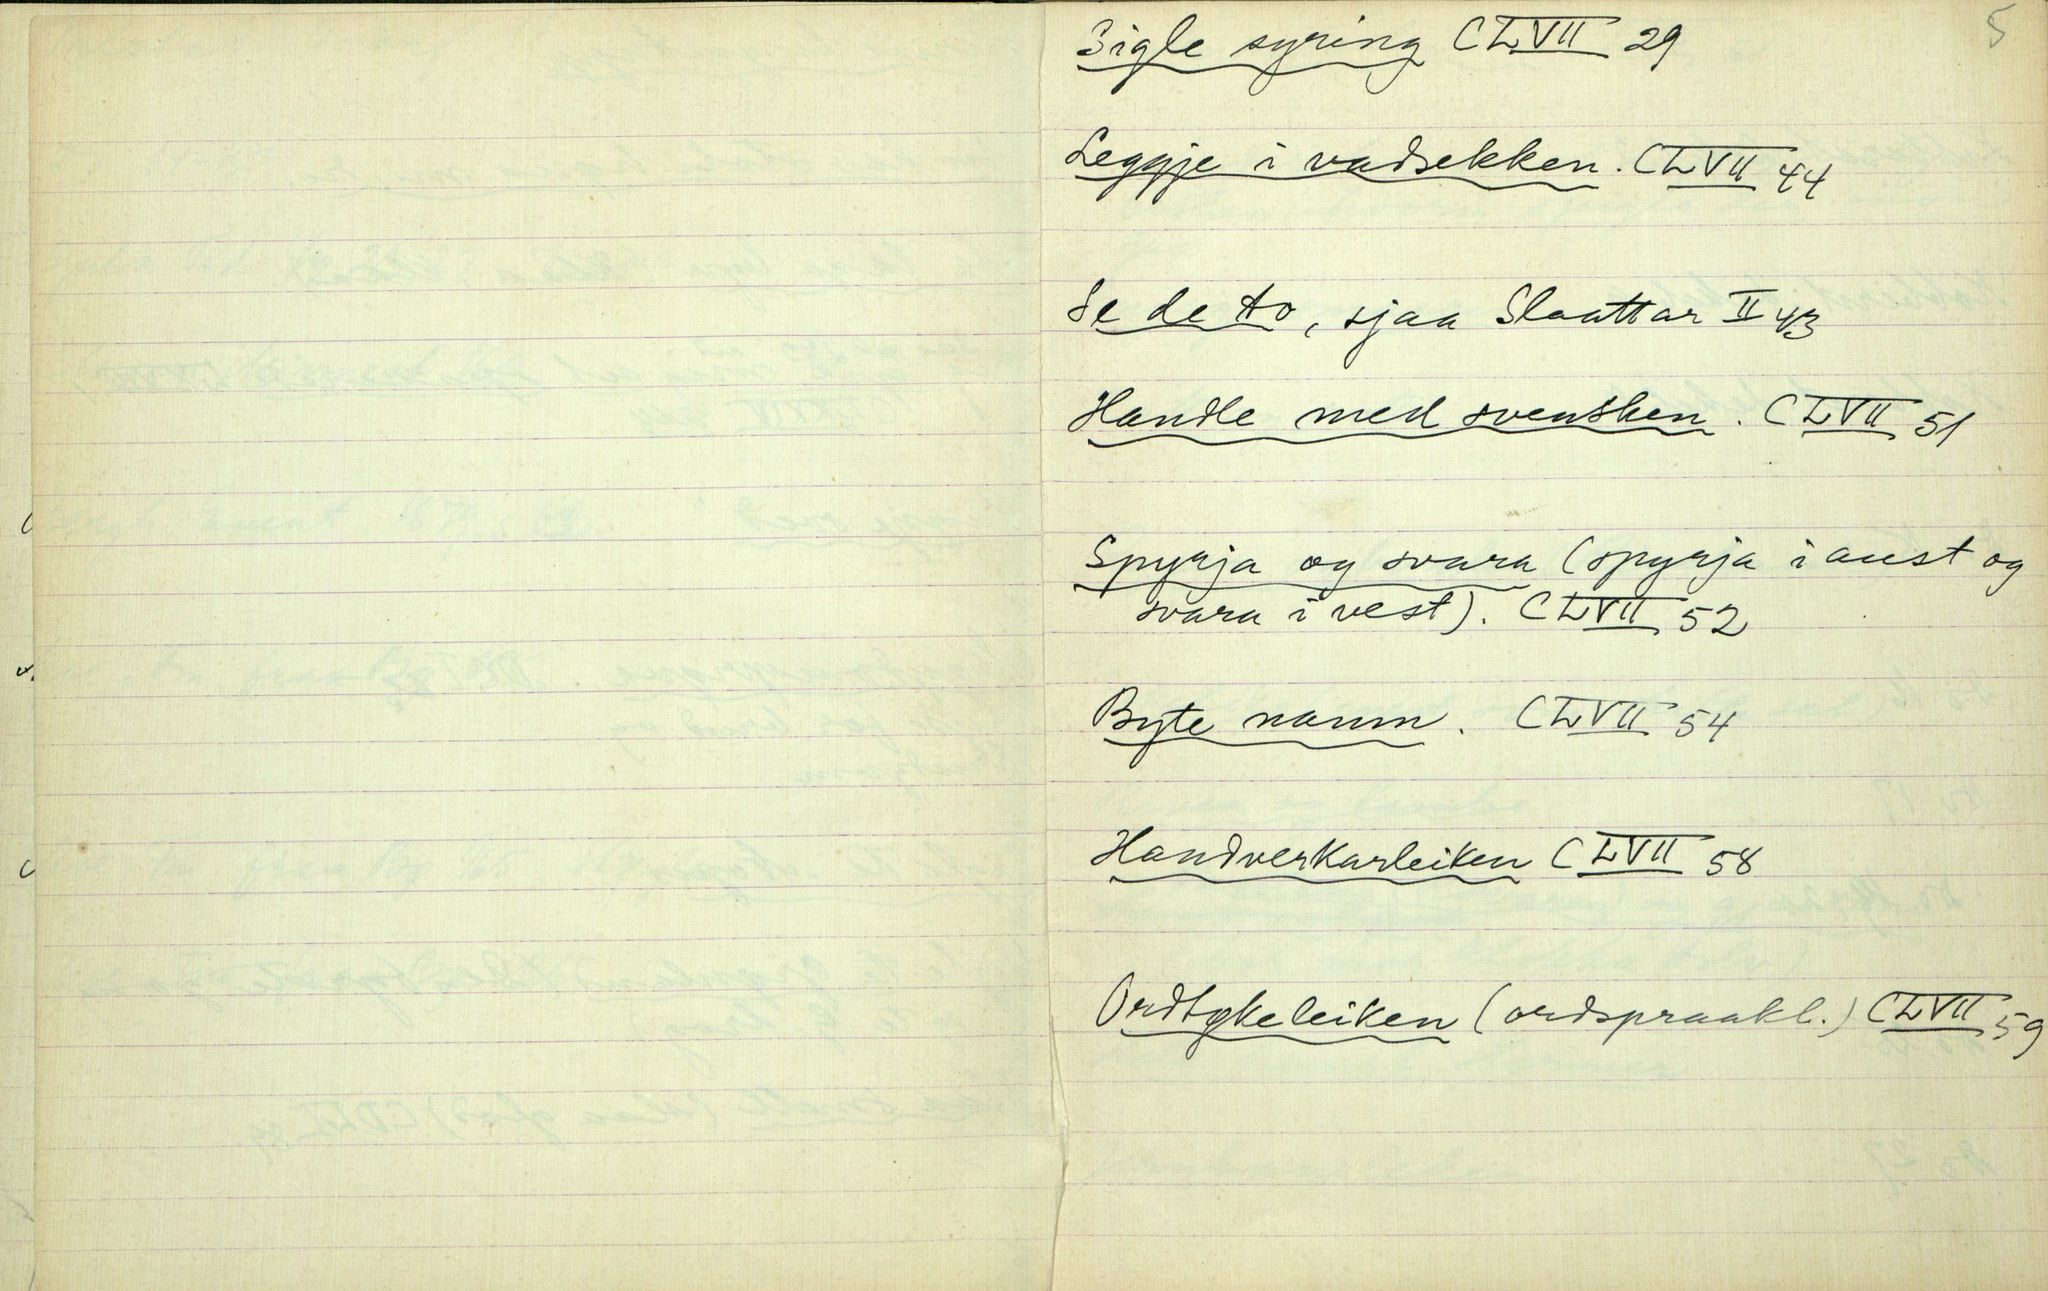 5
Sigle syring CLVII 29
Leggje i vadsekken. CLVII 44
Se de to, sjaa Slaattar II 43
Handle med svensken. CLVII 51
Spyrja og svara (spyrja i aust og
svara i vest). CLVII 52
Byte namn. CLVII 54
Handverkarleiken CLVII 58
Ordtykeleiken (ordspraakl.) CLVII 59